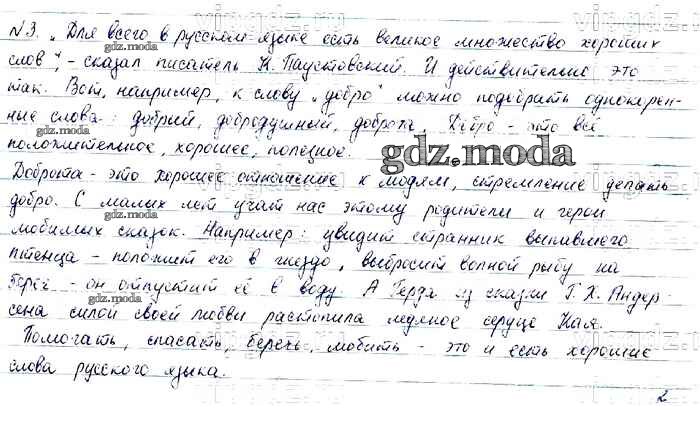 №3. „Для всего в русском языке есть великое множество хороших
слов", - сказал писатель К. Паустовский. И действительно это
так. Вот, например, к слову „добро" можно подобрать однокорен-
ные слова: добрый, добродушный, доброта. Добро - это всё
положительное, хорошее, полезное.
gdz.moda
Доброта - это хорошее отношение к людям, стремление делать
добро. С малых лет учат нас этому родители и герои
любимых сказок. Например: увидит странник выпавшего
птенца - положит его в гнездо, выбросит волной рыбу на
берег - он отпустит её в воду. А Герда из сказки Г. Х. Андер-
сена силой своей любви растопила ледяное сердце Кая.
Помогать, спасать, беречь, любить - это и есть хорошие
слова русского языка.
2